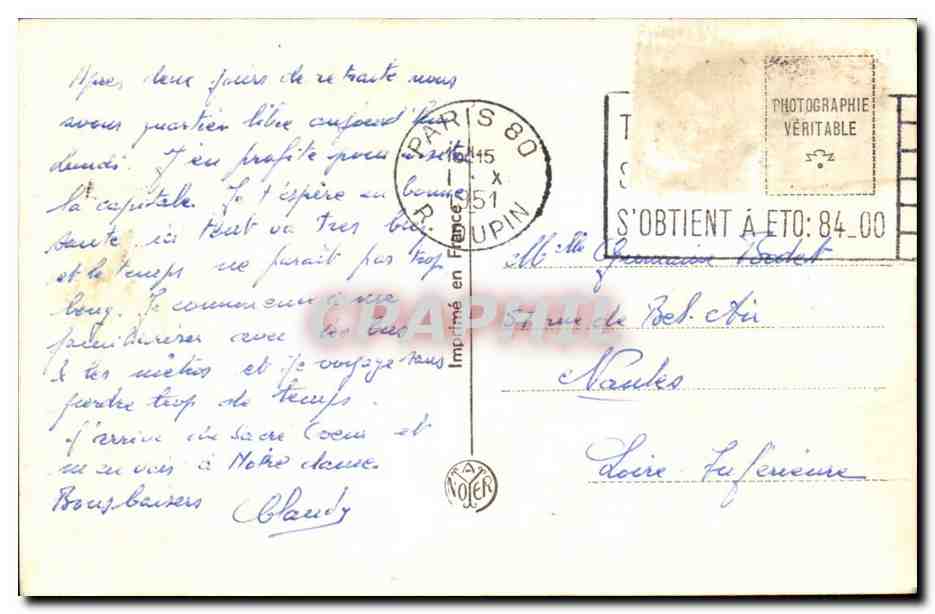 Après deux jours de retraite nous
avons quartier libre aujourd'hui
lundi. J'en profite pour visiter
la capitale. Je t'espère en bonne
santé ici tout va très bien
et le temps ne paraît pas trop
long. Je commence à me
familiariser avec les bus
& les métros et je voyage sans
perdre trop de temps.
J'arrive du Sacré Coeur et
m'en vais à Notre dame.
Bons baisers Claudy
Imprimé en France
YATA NOTER
PARIS 80
15H15
1 - X
1951
R. DUPIN
T
S
S'OBTIENT À ETO: 84_00
PHOTOGRAPHIE
VÉRITABLE
Melle Germaine
57 rue de Bel-Air
Nantes
Loire-Inférieure
CPAPHIL